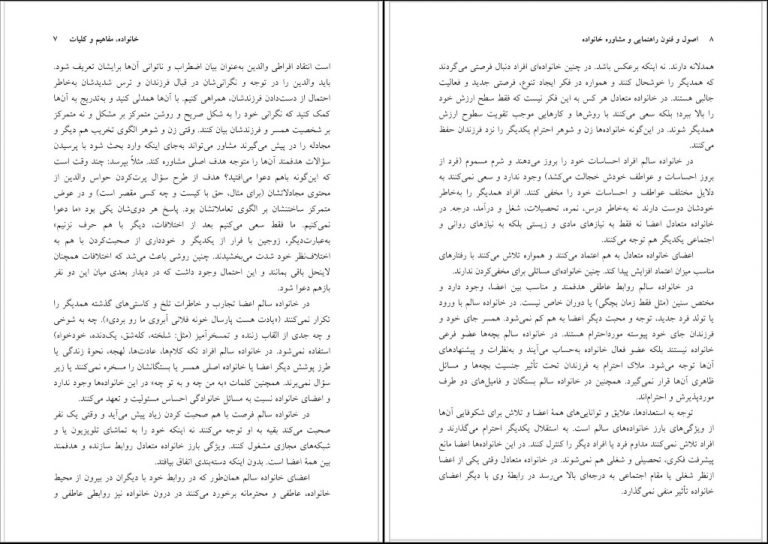 خانواده، مفاهیم و کلیات ۷
است انتقاد افراطی والدین به‌عنوان بیان اضطراب و ناتوانی آن‌ها برایشان تعریف شود.
باید والدین را در توجه و نگرانی‌شان در قبال فرزندان و ترس شدیدشان به‌خاطر
احتمال از دست‌دادن فرزندشان، همراهی کنیم. با آن‌ها همدلی کنید و به‌تدریج به آن‌ها
کمک کنید که نگرانی خود را به شکل صریح و روشن متمرکز بر مشکل و نه متمرکز
بر شخصیت همسر و فرزندشان بیان کنند. وقتی زن و شوهر الگوی تخریب هم دیگر و
مجادله را در پیش می‌گیرند مشاور می‌تواند به‌جای اینکه وارد بحث شود با پرسیدن
سؤالات هدفمند آن‌ها را متوجه هدف اصلی مشاوره کند. مثلاً بپرسد: چند وقت است
که این‌گونه باهم دعوا می‌افتید؟ هدف از طرح سؤال پرت‌کردن حواس والدین از
محتوی مجادلاتشان (برای مثال، حق با کیست و چه کسی مقصر است) و در عوض
متمرکز ساختنشان بر الگوی تعاملاتشان بود. پاسخ هر دوی‌شان یکی بود «ما دعوا
نمی‌کنیم. ما فقط سعی می‌کنیم بعد از اختلافات، دیگر با هم حرف نزنیم»
به‌عبارت‌دیگر، زوجین با فرار از یکدیگر و خودداری از صحبت‌کردن با هم به
اختلاف‌نظر خود شدت می‌بخشیدند. چنین روشی باعث می‌شد که اختلافات همچنان
لاینحل باقی بمانند و این احتمال وجود داشت که در دیدار بعدی میان این دو نفر
بازهم دعوا شود.
در خانواده سالم اعضا تجارب و خاطرات تلخ و کاستی‌های گذشته همدیگر را
تکرار نمی‌کنند («یادت هست پارسال خونه فلانی آبروی ما رو بردی»). چه به شوخی
و چه جدی از القاب زننده و تمسخرآمیز (مثل: شلخته، کله‌شق، یک‌دنده، خودخواه)
استفاده نمی‌شود. در خانواده سالم افراد تکه کلام‌ها، عادت‌ها، لهجه، نحوهٔ زندگی یا
طرز پوشش دیگر اعضا یا خانواده اصلی همسر یا بستگانشان را مسخره نمی‌کنند یا زیر
سؤال نمی‌برند. همچنین کلمات «به من چه و به تو چه» در این خانواده‌ها وجود ندارد
و اعضای خانواده نسبت به مسائل خانوادگی احساس مسئولیت و تعهد می‌کنند.
در خانواده سالم فرصت با هم صحبت کردن زیاد پیش می‌آید و وقتی یک نفر
صحبت می‌کند بقیه به او توجه می‌کنند نه اینکه خود را به تماشای تلویزیون یا و
شبکه‌های مجازی مشغول کنند. ویژگی بارز خانواده متعادل روابط سازنده و هدفمند
بین همهٔ اعضا است. بدون اینکه دسته‌بندی اتفاق بیافتد.
اعضای خانواده سالم همان‌طور که در روابط خود با دیگران در بیرون از محیط
خانواده، عاطفی و محترمانه برخورد می‌کنند در درون خانواده نیز روابطی عاطفی و
۸ اصول و فنون راهنمایی و مشاوره خانواده
همدلانه دارند. نه اینکه برعکس باشد. در چنین خانواده‌ای افراد دنبال فرصتی می‌گردند
که همدیگر را خوشحال کنند و همواره در فکر ایجاد تنوع، فرصتی جدید و فعالیت
جالبی هستند. در خانواده متعادل هر کس به این فکر نیست که فقط سطح ارزش خود
را بالا ببرد؛ بلکه سعی می‌کنند با روش‌ها و کارهایی موجب تقویت سطوح ارزش
همدیگر شوند. در این‌گونه خانواده‌ها زن و شوهر احترام یکدیگر را نزد فرزندان حفظ
می‌کنند.
در خانواده سالم افراد احساسات خود را بروز می‌دهند و شرم مسموم (فرد از
بروز احساسات و عواطف خودش خجالت می‌کشد) وجود ندارد و سعی نمی‌کنند به
دلایل مختلف عواطف و احساسات خود را مخفی کنند. افراد همدیگر را به‌خاطر
خودشان دوست دارند نه به‌خاطر درس، نمره، تحصیلات، شغل و درآمد، درجه. در
خانواده متعادل اعضا نه فقط به نیازهای مادی و زیستی بلکه به نیازهای روانی و
اجتماعی یکدیگر هم توجه می‌کنند.
اعضای خانواده متعادل به هم اعتماد می‌کنند و همواره تلاش می‌کنند با رفتارهای
مناسب میزان اعتماد افزایش پیدا کند. چنین خانواده‌ای مسائلی برای مخفی‌کردن ندارند.
در خانواده سالم روابط عاطفی هدفمند و مناسب بین اعضا، وجود دارد و
مختص سنین (مثل فقط زمان بچگی) یا دوران خاص نیست. در خانواده سالم با ورود
یا تولد فرد جدید، توجه و محبت دیگر اعضا به هم کم نمی‌شود. همسر جای خود و
فرزندان جای خود پیوسته مورداحترام هستند. در خانواده سالم بچه‌ها عضو فرعی
خانواده نیستند بلکه عضو فعال خانواده به‌حساب می‌آیند و به‌نظرات و پیشنهادهای
آن‌ها توجه می‌شود. ملاک احترام به فرزندان تحت تأثیر جنسیت بچه‌ها و مسائل
ظاهری آن‌ها قرار نمی‌گیرد. همچنین در خانواده سالم بستگان و فامیل‌های دو طرف
موردپذیرش و احترام‌اند.
توجه به استعدادها، علایق و توانایی‌های همهٔ اعضا و تلاش برای شکوفایی آن‌ها
از ویژگی‌های بارز خانواده‌های سالم است. به استقلال یکدیگر احترام می‌گذارند و
افراد تلاش نمی‌کنند مداوم فرد یا افراد دیگر را کنترل کنند. در این خانواده‌ها اعضا مانع
پیشرفت فکری، تحصیلی و شغلی هم نمی‌شوند. در خانواده متعادل وقتی یکی از اعضا
ازنظر شغلی یا مقام اجتماعی به درجه‌ای بالا می‌رسد در رابطهٔ وی با دیگر اعضای
خانواده تأثیر منفی نمی‌گذارد.